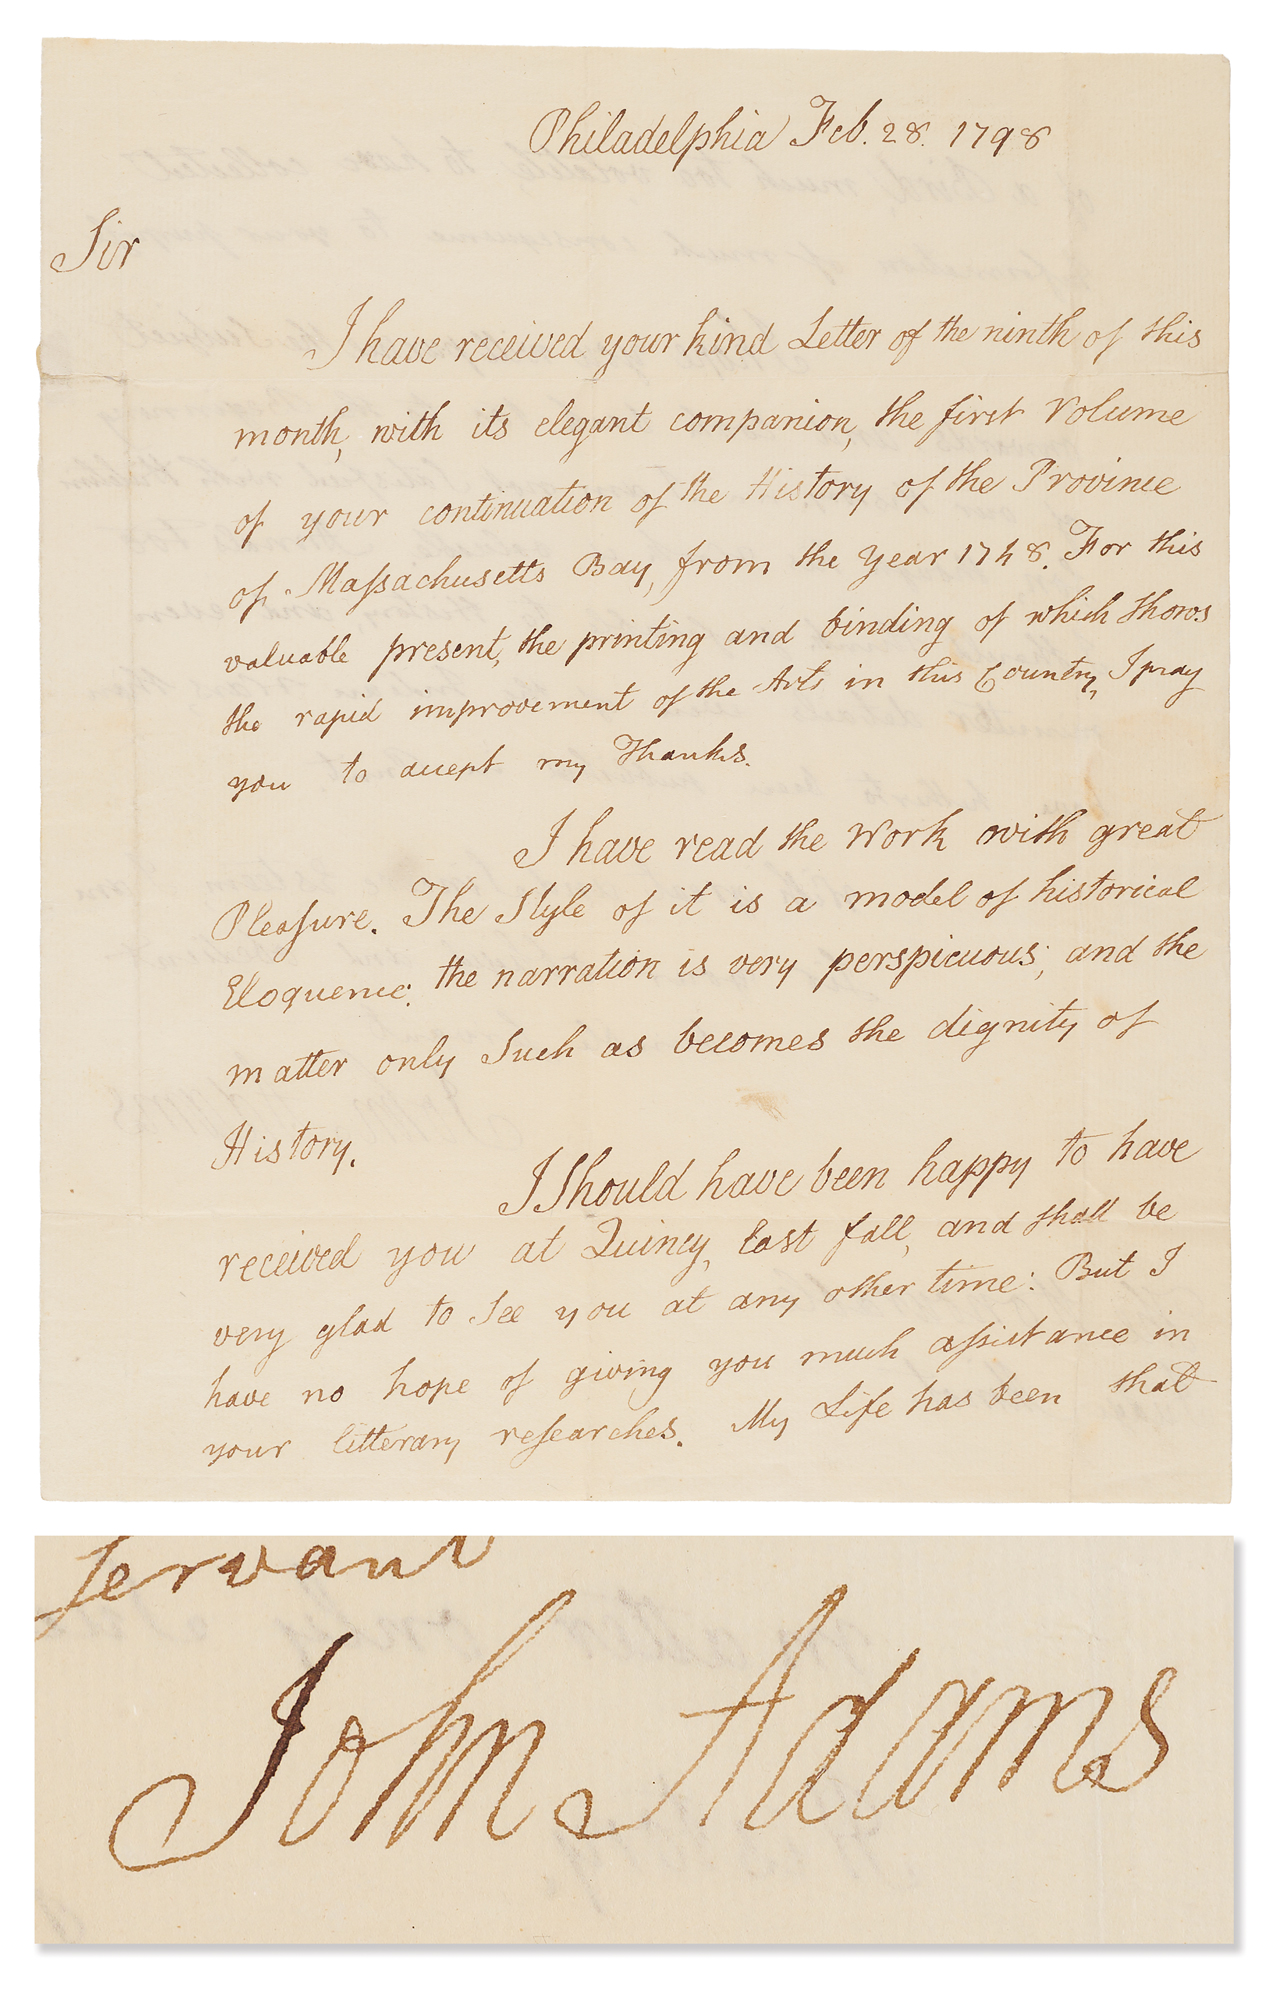 Philadelphia Feb. 28. 1798
Sir
I have received your kind Letter of the ninth of this
month, with its elegant companion, the first Volume
of your continuation of the History of the Province
of Massachusetts Bay, from the year 1748. For this
valuable present, the printing and binding of which shows
the rapid improvement of the Arts in this Country, I pray
you to accept my Thanks.
I have read the Work with great
Pleasure. The Style of it is a model of historical
Eloquence: the narration is very perspicuous; and the
matter only Such as becomes the dignity of
History.
I Should have been happy to have
received you at Quincy, last fall, and shall be
very glad to See you at any other time: But I
have no hope of giving you much assistance in
your litterary researches. My Life has been that
Servant
John Adams